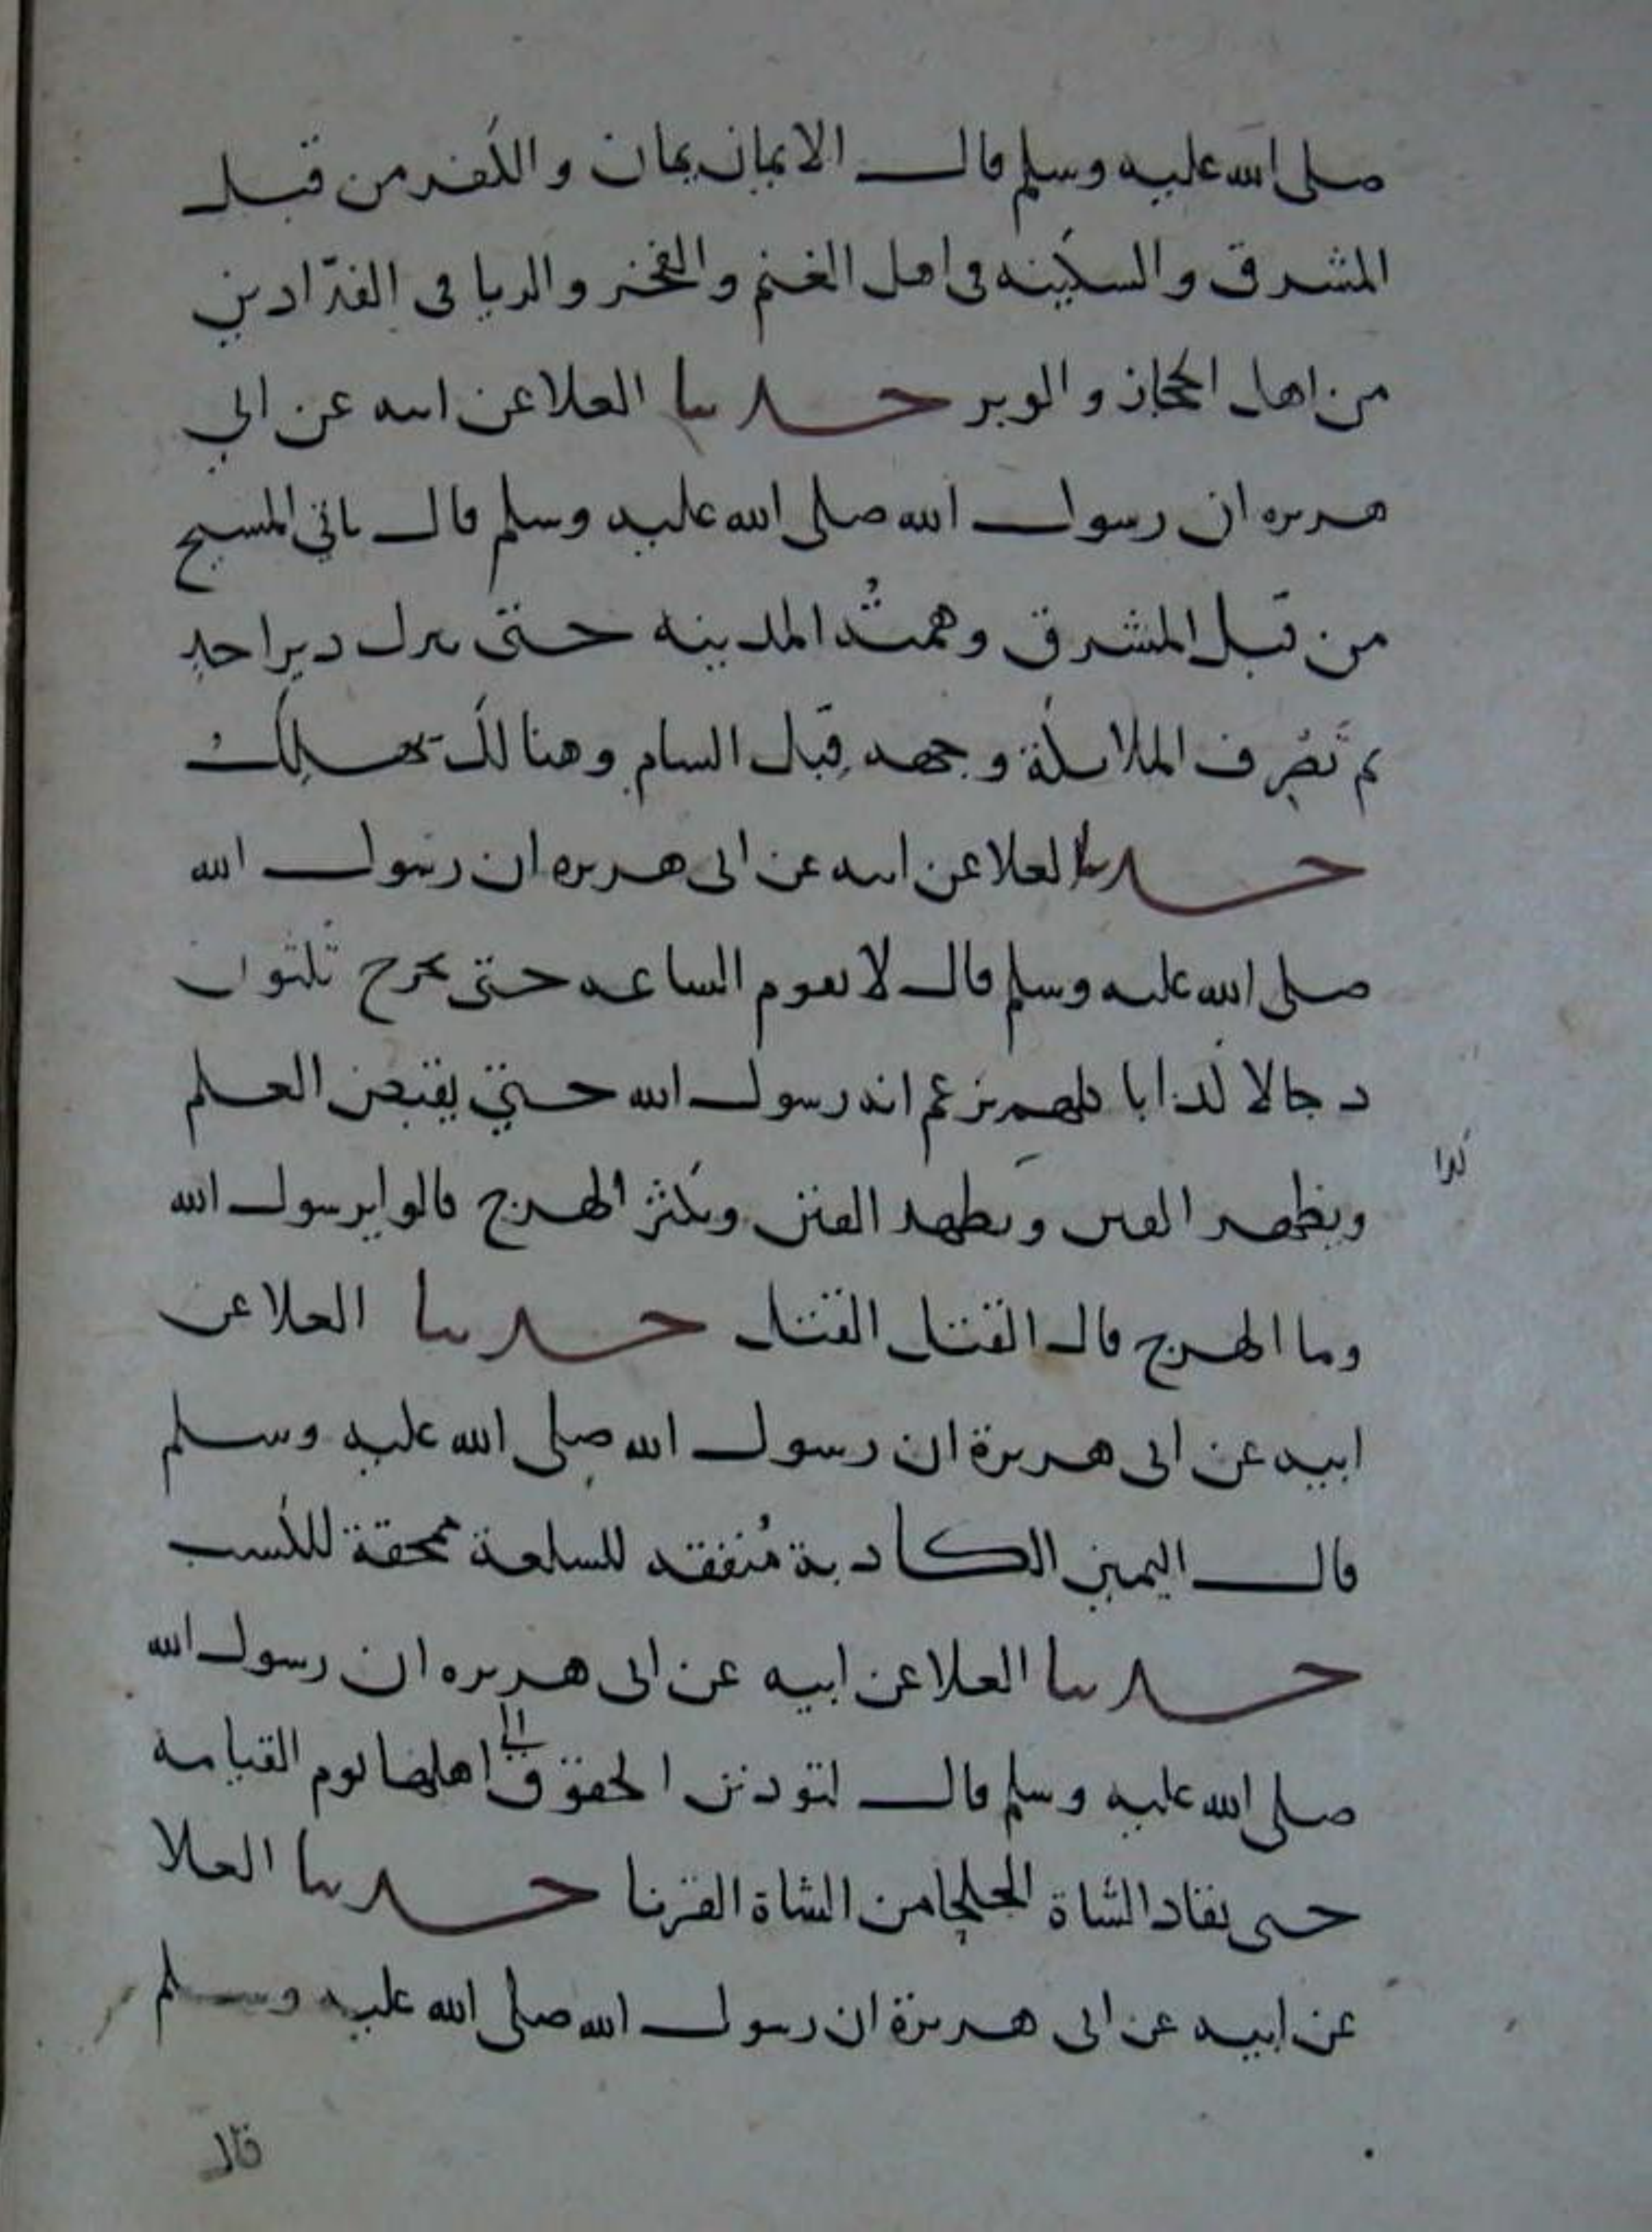 صلى الله عليه وسلم قال الايمان يمان والكفر من قبل
المشرق والسكينه فى اهل الغنم والفخر والريا فى الفدّادين
من اهل الحجاز والوبر حدثنا العلا عن ابيه عن ابي
هريره ان رسول الله صلى الله عليه وسلم قال ياتي المسيح
من قبل المشرق وهمتُه المدينه حتى ينزل دبر احد
ثم تَصْرِف الملائكة وجهه قِبَل الشام وهنالك يهلك
حدثنا العلا عن ابيه عن ابى هريره ان رسول الله
صلى الله عليه وسلم قال لا تقوم الساعه حتى يخرج ثلثون
دجالا كذابا كلهم يزعم انه رسول الله حتي يقبض العلم
ويظهر الفتن ويظهر الفتن ويكثر الهرج قالوا يرسول الله
كذا
وما الهرج قال القتل القتل حدثنا العلا عن
ابيه عن ابى هريرة ان رسول الله صلى الله عليه وسلم
قال اليمين الكاذبة مُنفقه للسلعة ممحقة للكسب
حدثنا العلا عن ابيه عن ابى هريره ان رسول الله
صلى الله عليه وسلم قال لتودن الحقوق الى اهلها يوم القيامه
حتى يقاد الشاة الجلحا من الشاة القرنا حدثنا العلا
عن ابيه عن ابى هريرة ان رسول الله صلى الله عليه وسلم
قال